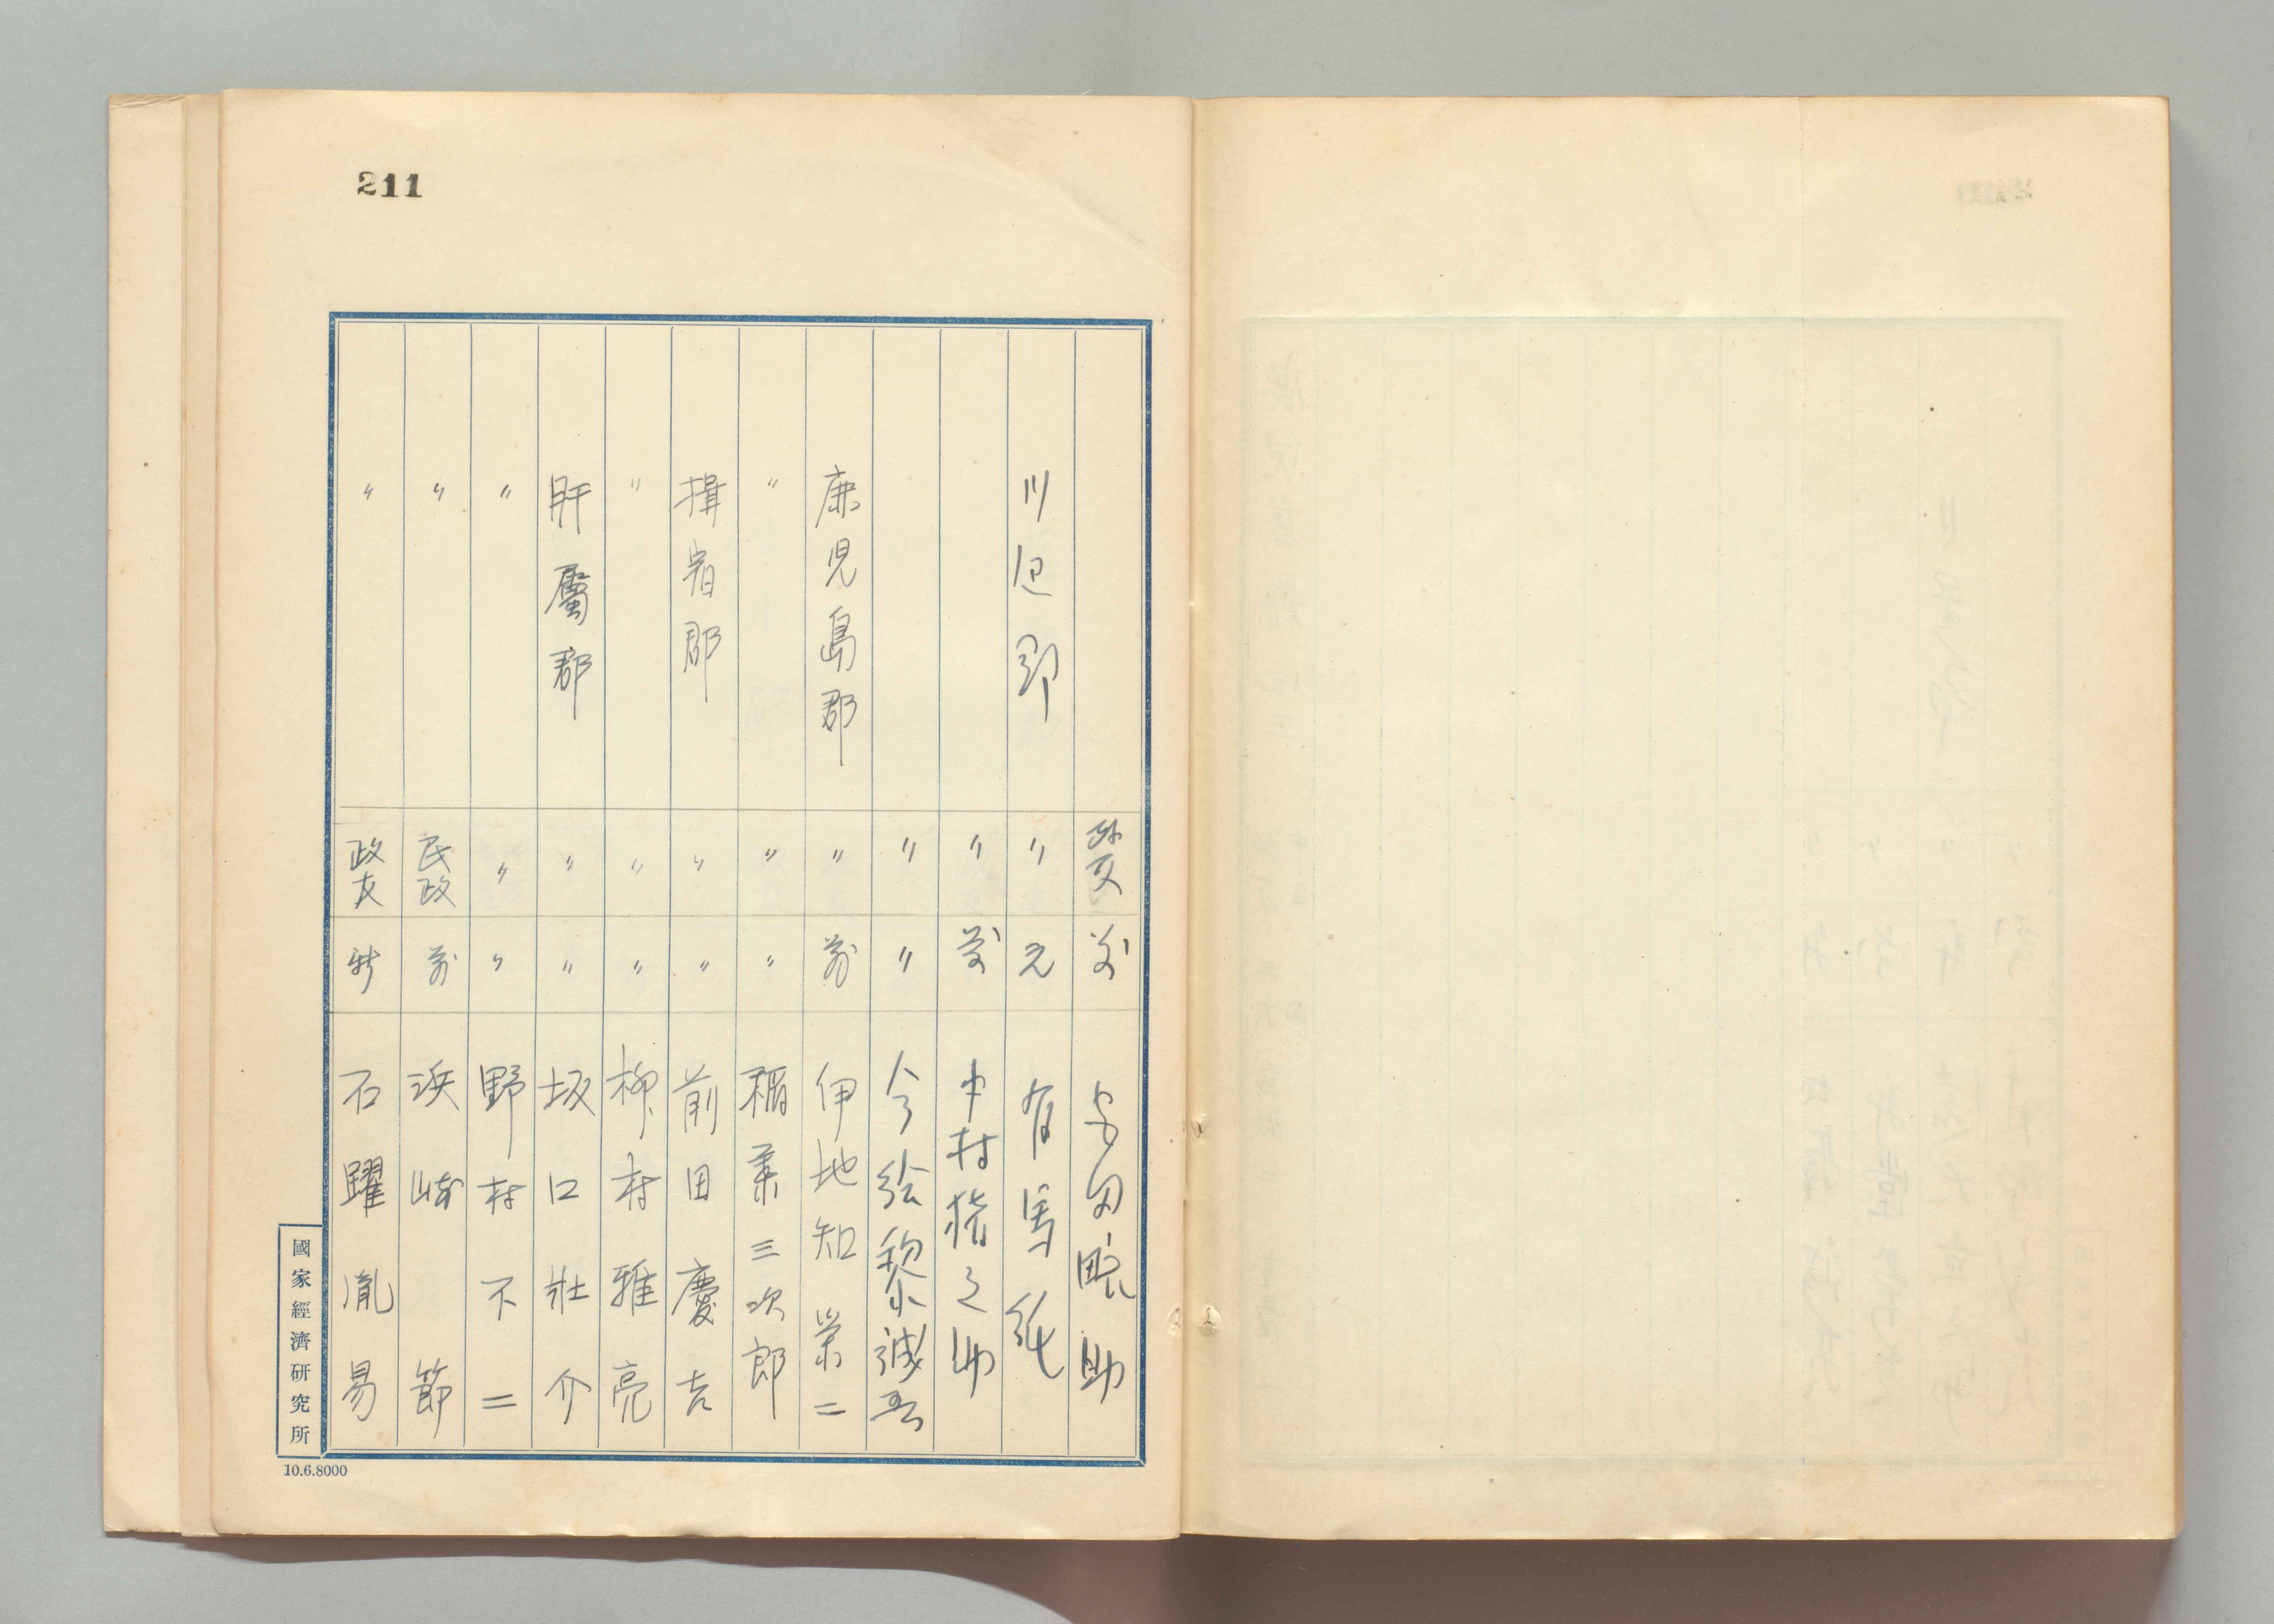 211
政友 前 安田畩助
川辺郡 〃 元 有馬純
〃 前 中村猪之助
〃 〃 今給黎誠吾
鹿児島郡 〃 前 伊地知栄二
〃 〃 〃 稲葉三次郎
揖宿郡 〃 〃 前田慶吉
〃 〃 〃 柳村雅亮
肝属郡 〃 〃 坂口壮介
〃 〃 〃 野村不二
〃 民政 前 浜崎節
〃 政友 新 石躍胤易
國家經濟研究所
10.6.8000